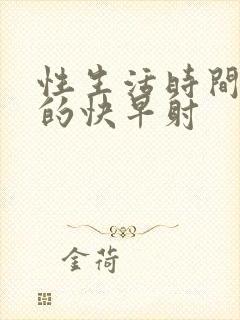 性生活時間
的快早射
金荷